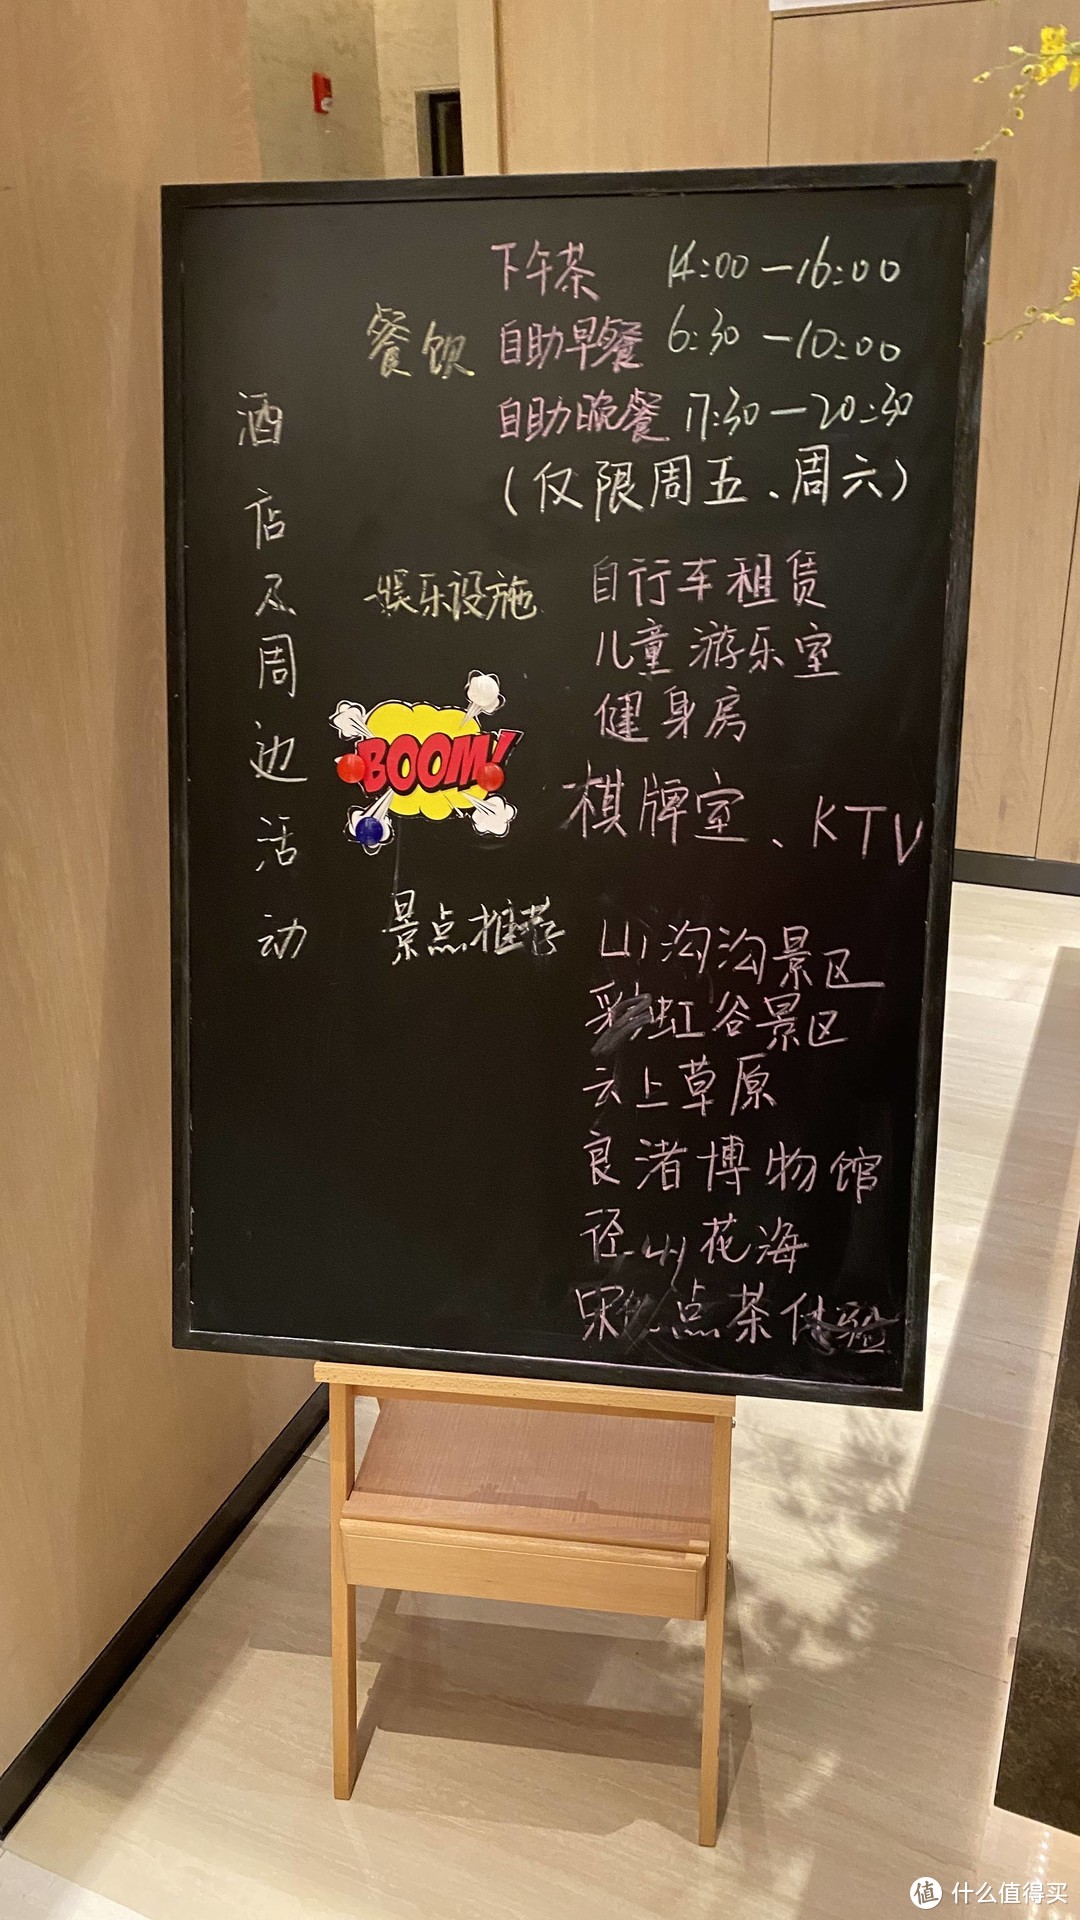 酒店及周边活动
餐饮
下午茶 14:00—16:00
自助早餐 6:30—10:00
自助晚餐 17:30—20:30
(仅限周五、周六)
娱乐设施
自行车租赁
儿童游乐室
健身房
棋牌室、KTV
BOOM!
景点推荐
山沟沟景区
彩虹谷景区
云上草原
良渚博物馆
径山花海
点茶体验
值 什么值得买